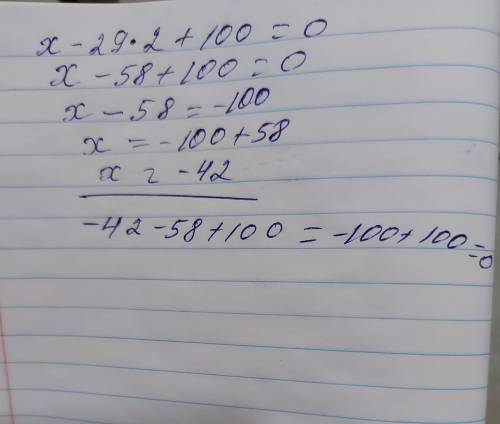 x - 29·2 + 100 = 0
x - 58 + 100 = 0
x - 58 = -100
x = -100 + 58
x = -42
-42 - 58 + 100 = -100 + 100 = 0